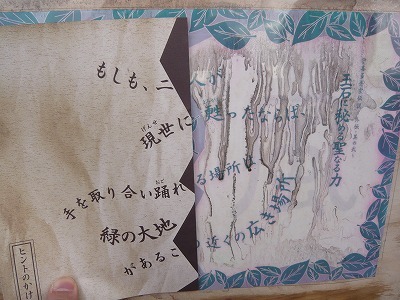 玉石に秘める聖なる力
もしも、二人が
げんせ
現世に甦ったならば、
おど
手を取り合い踊れる場所は
緑の大地
があるこ 近くの広き場所
ヒントのかけ